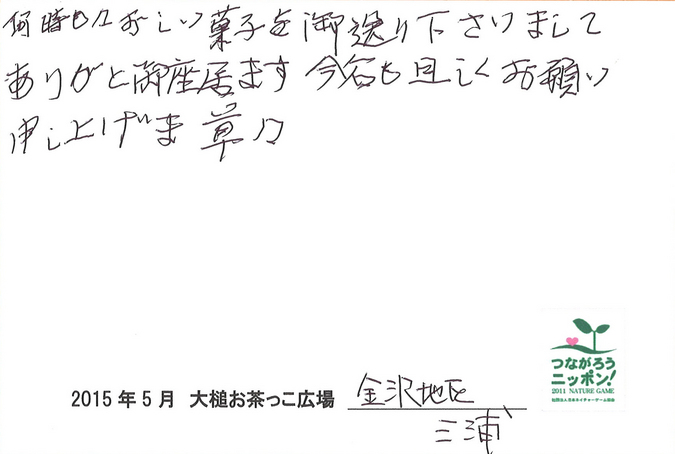 何時もおいしい菓子を御送り下さいまして
ありがと御座居ます 今后も宜しくお願い
申し上げま 草々
2015年5月 大槌お茶っこ広場 金沢地区
三浦
つながろう
ニッポン!
2011 NATURE GAME
社団法人日本ネイチャーゲーム協会